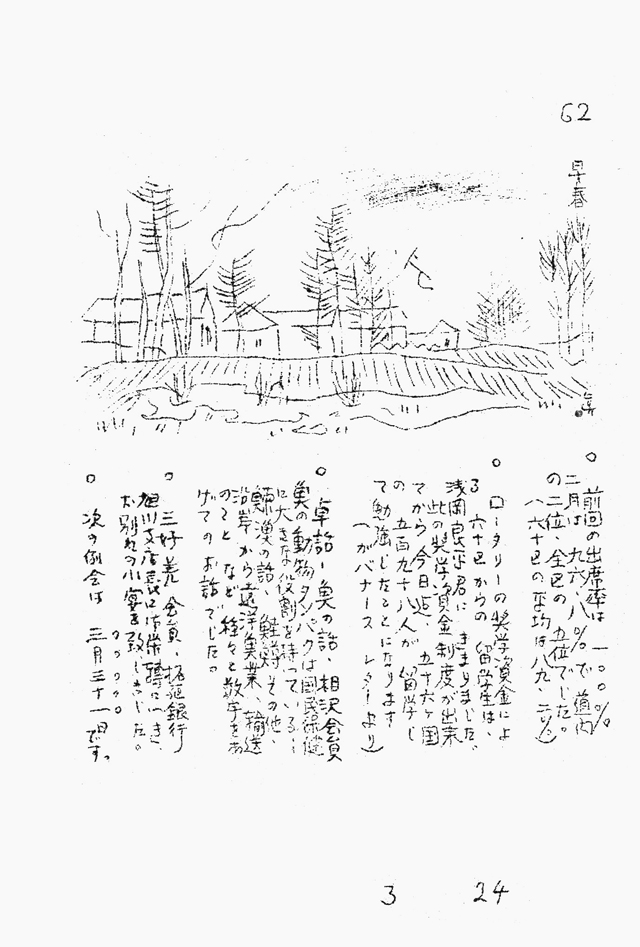 62
早春
○ 前回の出席率は 一〇〇%
二月は九六、八%で道内
の二位、全区の五位でした。
(六十区の平均は八九、二%)
○ ロータリーの奨学資金によ
る 六十区からの 留学生は、
浅岡良平君に きまりました。
此の奨学資金制度が出来
てから今日迄、五十六ヶ国
の 五百九十八人が 留学し
て勉強したことになります
(ガバナース レターより)
○ 卓話-魚の話、相沢会員
魚の動物タンパクは国民保健
に大きな役割を持っている
鯡漁の話、鮭鱒その他、
沿岸から遠洋漁業、輸送
のこと など種々と数字をあ
げてのお話でした。
○ 三好 会員、拓殖銀行
旭川支店長に御栄轉につき、
お別れの小宴を致しました。
○ 次の例会は 三月三十一日です。
3 24